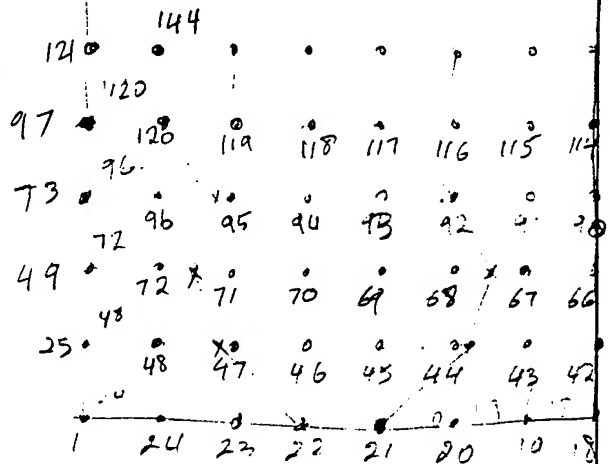 144
121
120
97 120 119 118 117 116 115 114
96
73 96 95 94 93 92
72
49 72 71 70 69 68 67 66
48
25 48 47 46 45 44 43 42
1 24 23 22 21 20 19 18